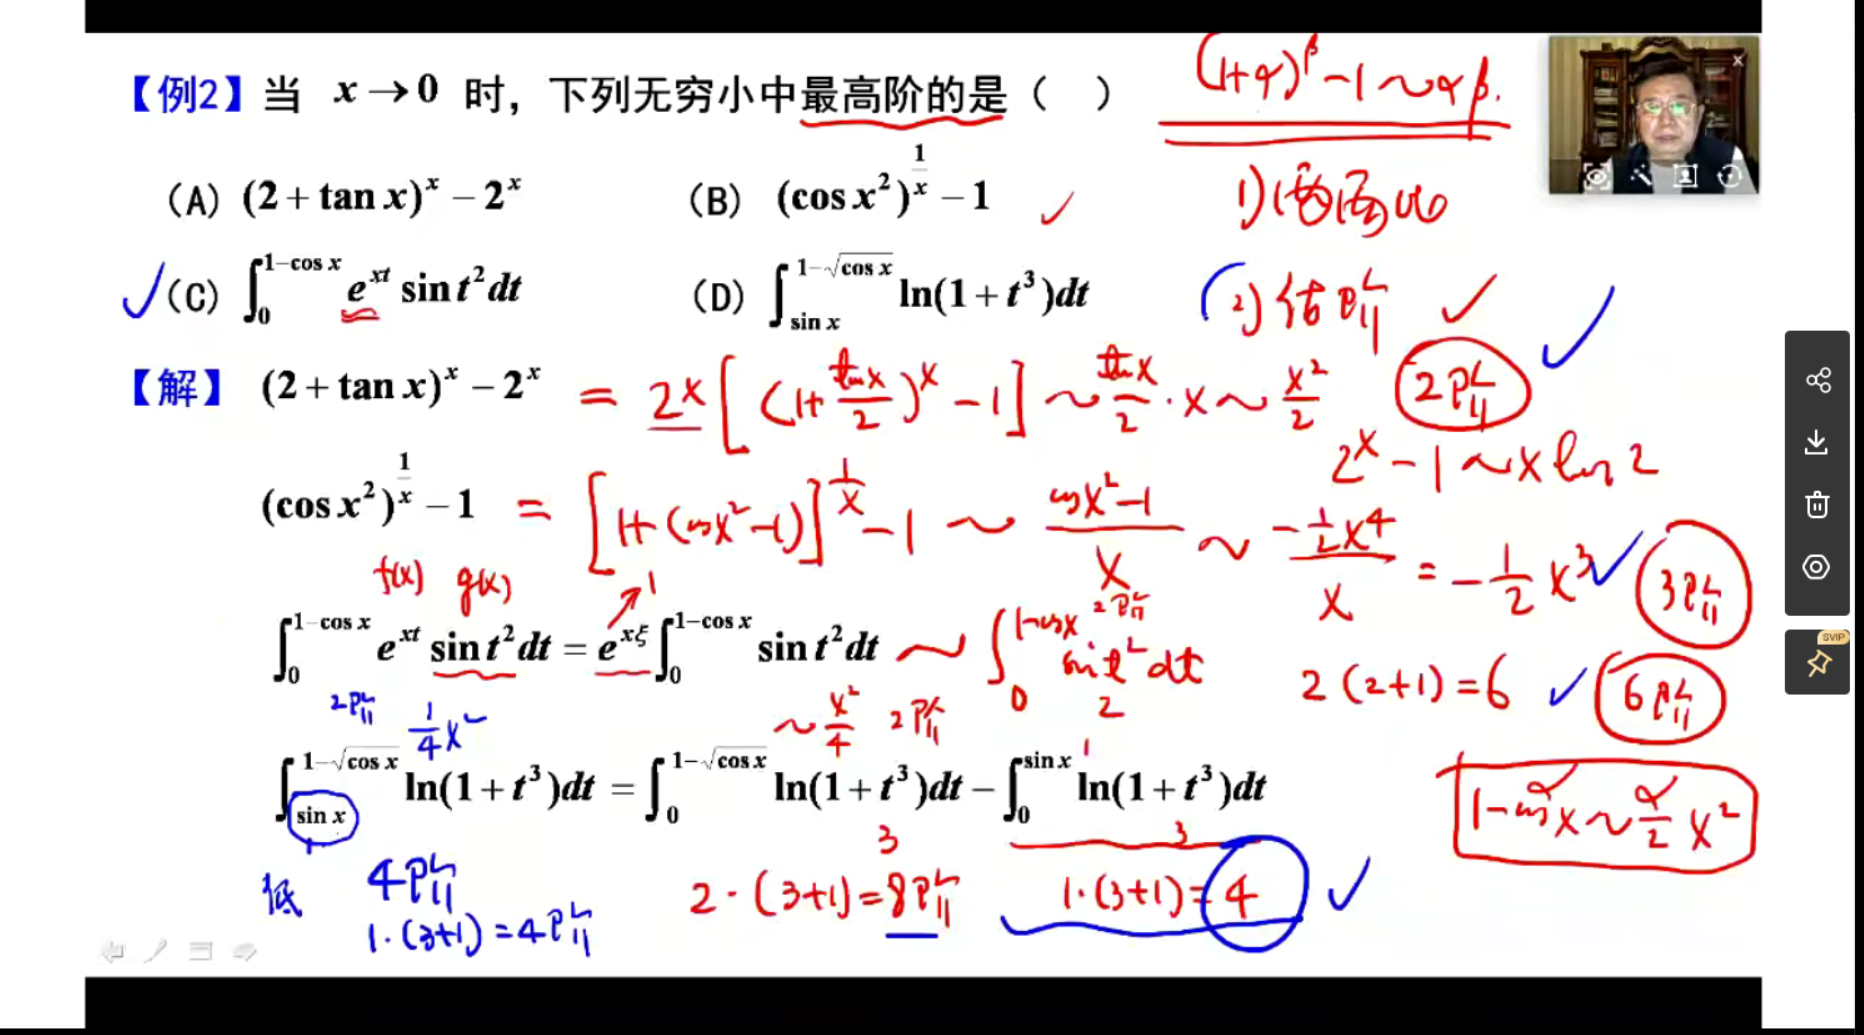 【例2】当 x→0 时，下列无穷小中最高阶的是（ ）
(1+α)^β −1 ~ αβ.
(A) (2 + tan x)^x − 2^x
(B) (cos x²)^{1/x} − 1
1)
(C) ∫_0^{1−cos x} e^{xt} sin t² dt
(D) ∫_{sin x}^{1−√cos x} ln(1 + t³)dt
2) 估阶
【解】 (2 + tan x)^x − 2^x = 2^x [(1+ tan x/2)^x − 1] ~ tan x/2 · x ~ x²/2 2阶
2^x − 1 ~ x ln 2
(cos x²)^{1/x} − 1 = [1+(cos x²−1)]^{1/x} − 1 ~ (cos x²−1)/x ~ (−1/2 x⁴)/x = −1/2 x³ 3阶
f(x) g(x) 1 2阶
∫_0^{1−cos x} e^{xt} sin t² dt = e^{xξ} ∫_0^{1−cos x} sin t² dt ~ ∫_0^{1−cos x} sin t² dt
2
2(2+1)=6 6阶
2阶 1/4 x² ~ x²/4 2阶 1
∫_{sin x}^{1−√cos x} ln(1 + t³)dt = ∫_0^{1−√cos x} ln(1 + t³)dt − ∫_0^{sin x} ln(1 + t³)dt
1−cos^α x ~ α/2 x²
1 3 3
低 4阶 2·(3+1)=8阶 1·(3+1)=4
1·(3+1)=4阶
SVIP